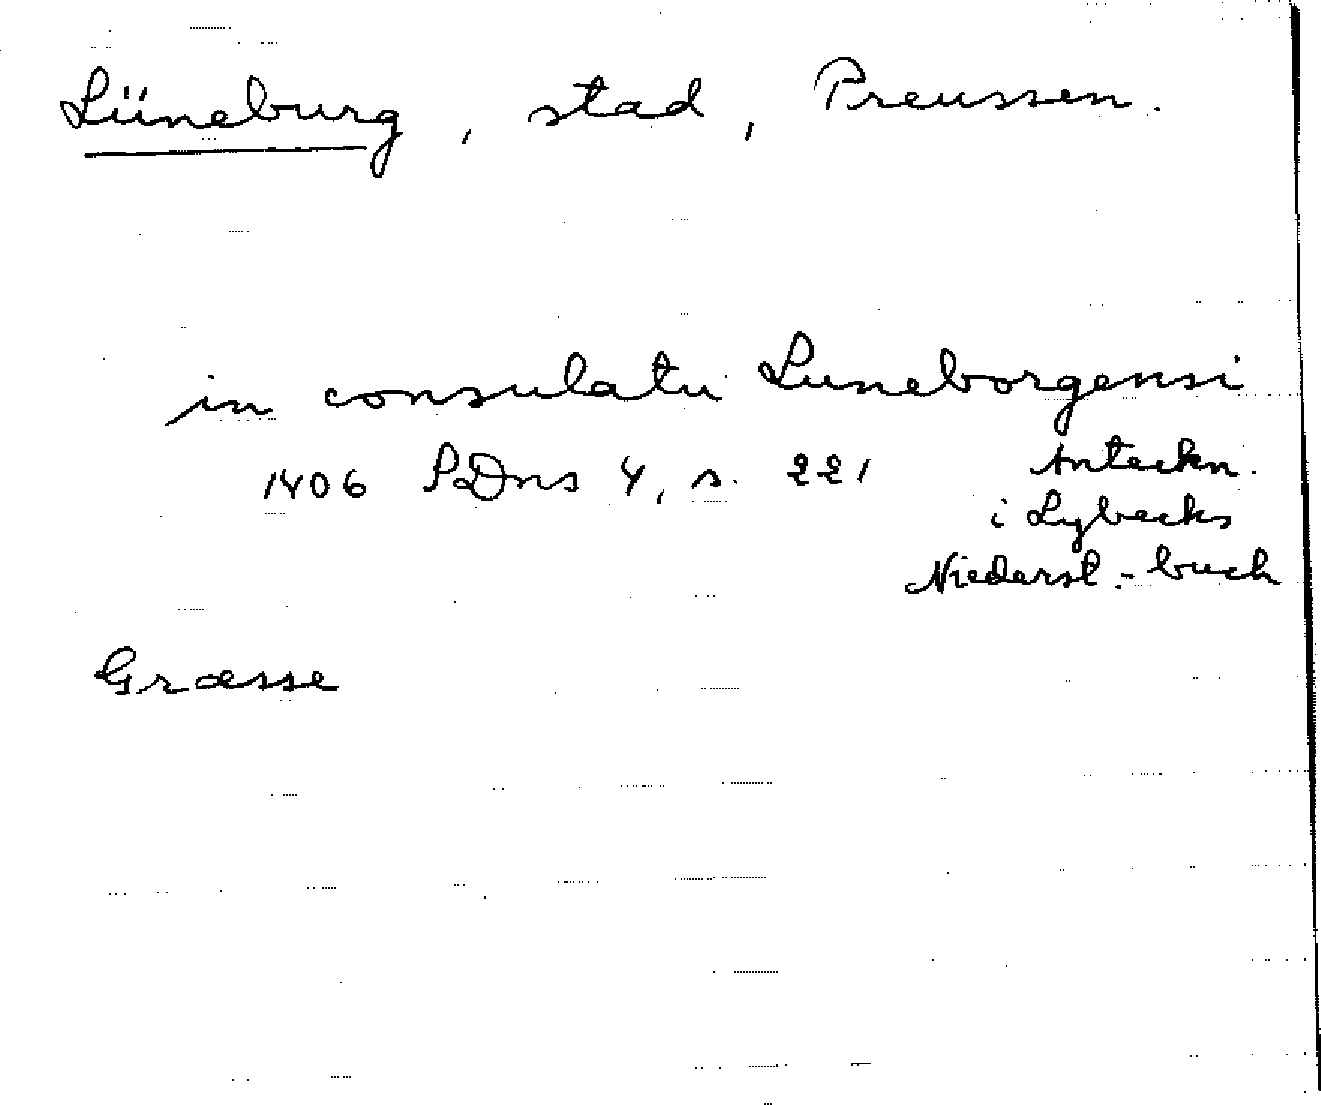 Lüneburg, stad, Preussen.
in consulatu Luneborgensi
1406 SDns 4, s. 221 Anteckn.
i Lybecks
Niederst.-buch
Graesse